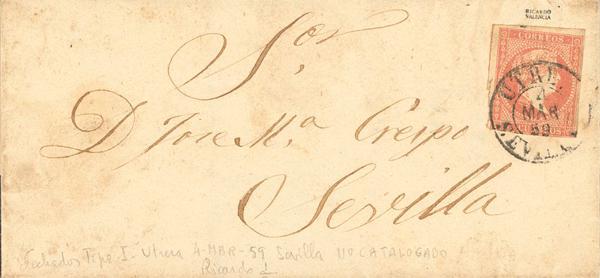 RICARDO
VALENCIA
CORREOS
Sor
UTRE
4
MAR
59
SEVILL
D Jose Ma Crespo
Sevilla
Fechados Tipo I. Utrera 4-MAR-59 Sevilla NO CATALOGADO
Ricardo